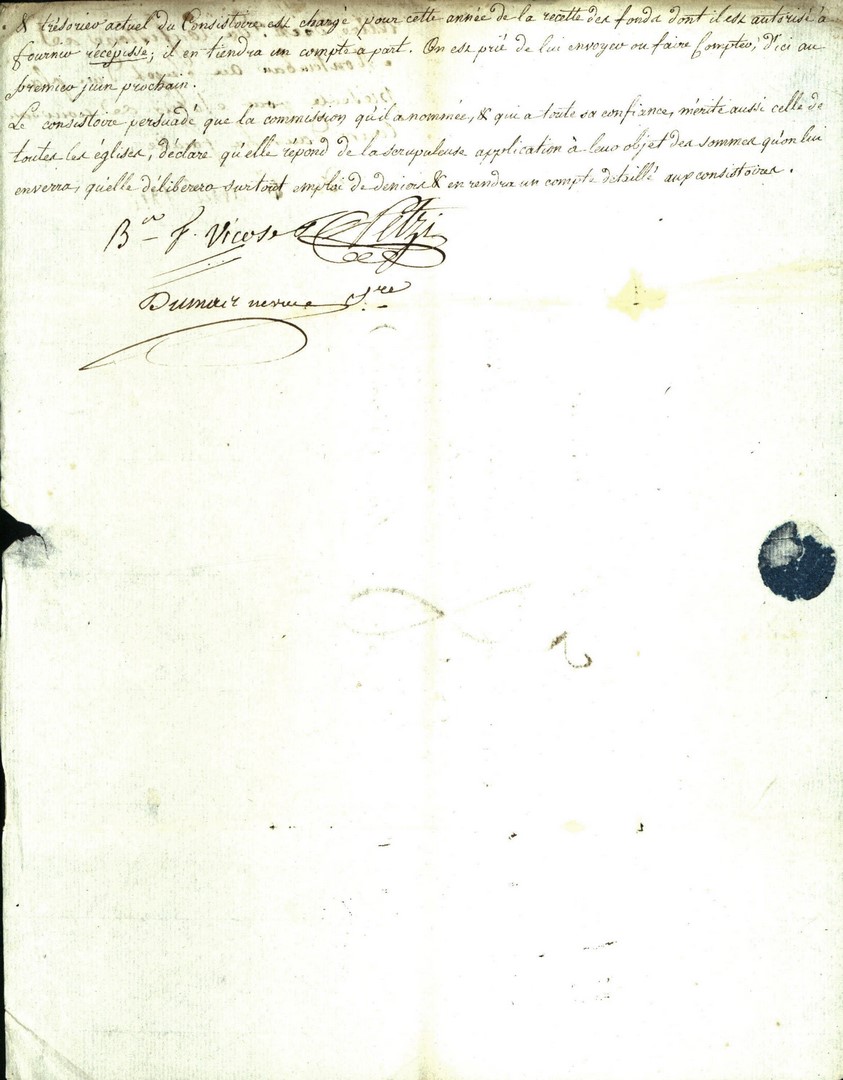 & trésorier actuel du Consistoire est chargé pour cette année de la recette des fonds dont il est autorisé à
fournir récépissé; il en tiendra un compte à part. On est prié de lui envoyer ou faire Compter, d'ici au
premier juin prochain.
Le consistoire persuadé que la commission qu'il a nommée, & qui a toute sa confiance, mérite aussi celle de
toutes les églises, déclare qu'elle répond de la scrupuleuse application à leur objet des sommes qu'on lui
enverra, qu'elle déliberera sur tout emploi de deniers & en rendra un compte détaillé aux consistoires.
Bon F. Vicose